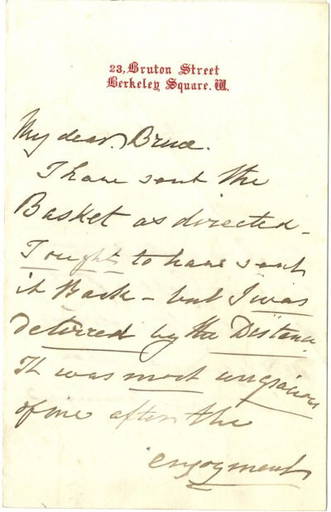 23, Bruton Street
Berkeley Square. W.
My dear Bruce.
I have sent the
Basket as directed -
I ought to have sent
it Back - but I was
deterred by the Distance
It was most ungracious
of me after the
enjoyment